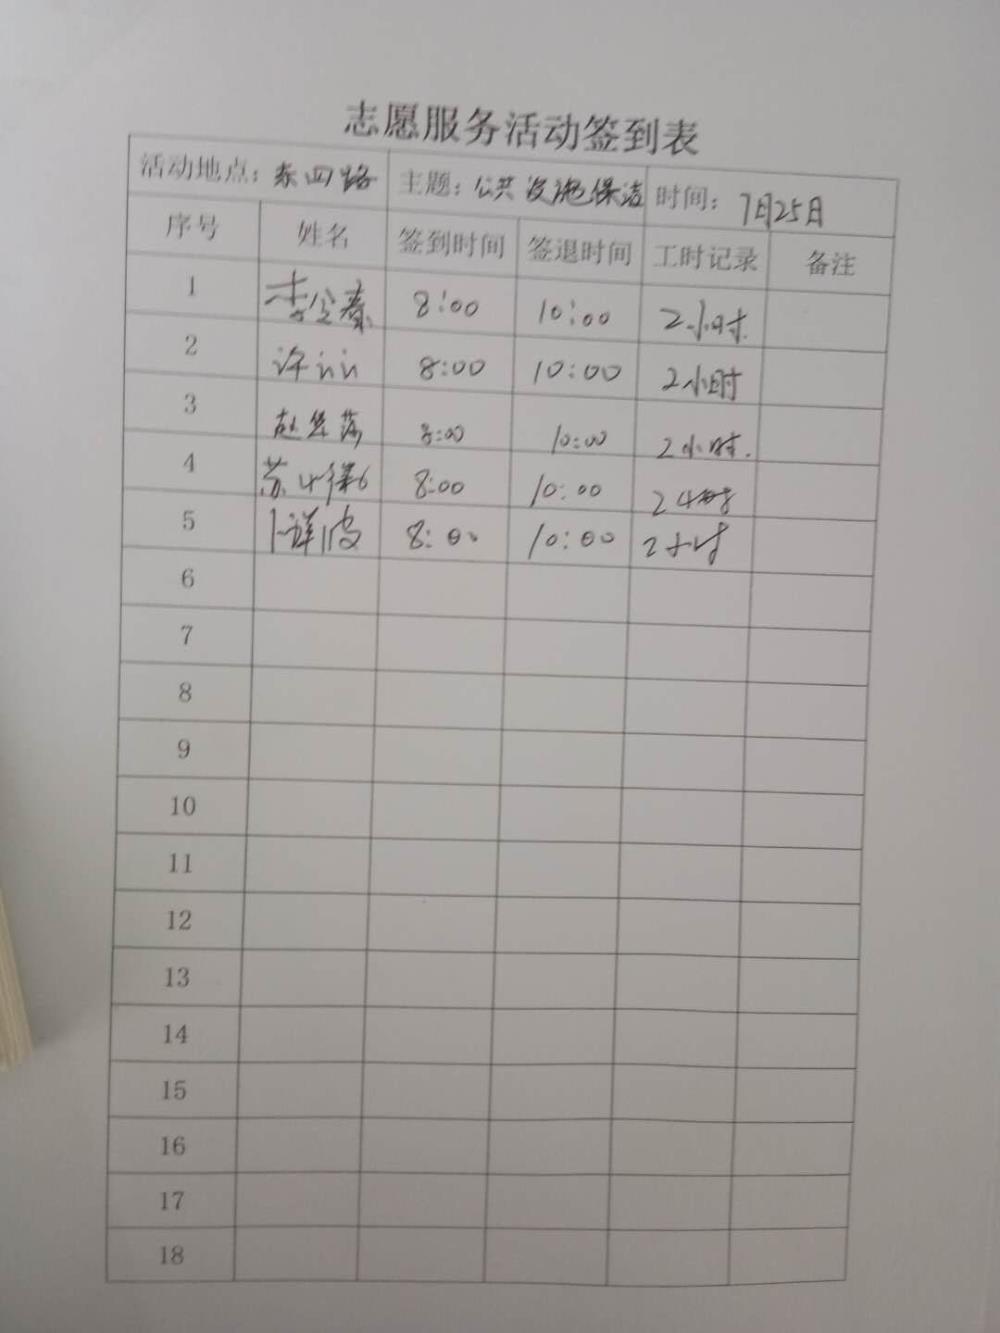 志愿服务活动签到表
活动地点：东四路 主题：公共设施保洁 时间：7月25日
序号 姓名 签到时间 签退时间 工时记录 备注
1 8:00 10:00 2小时
2 许 8:00 10:00 2小时
3 赵 8:00 10:00 2小时
4 苏 8:00 10:00 2小时
5 8:00 10:00 2小时
6
7
8
9
10
11
12
13
14
15
16
17
18